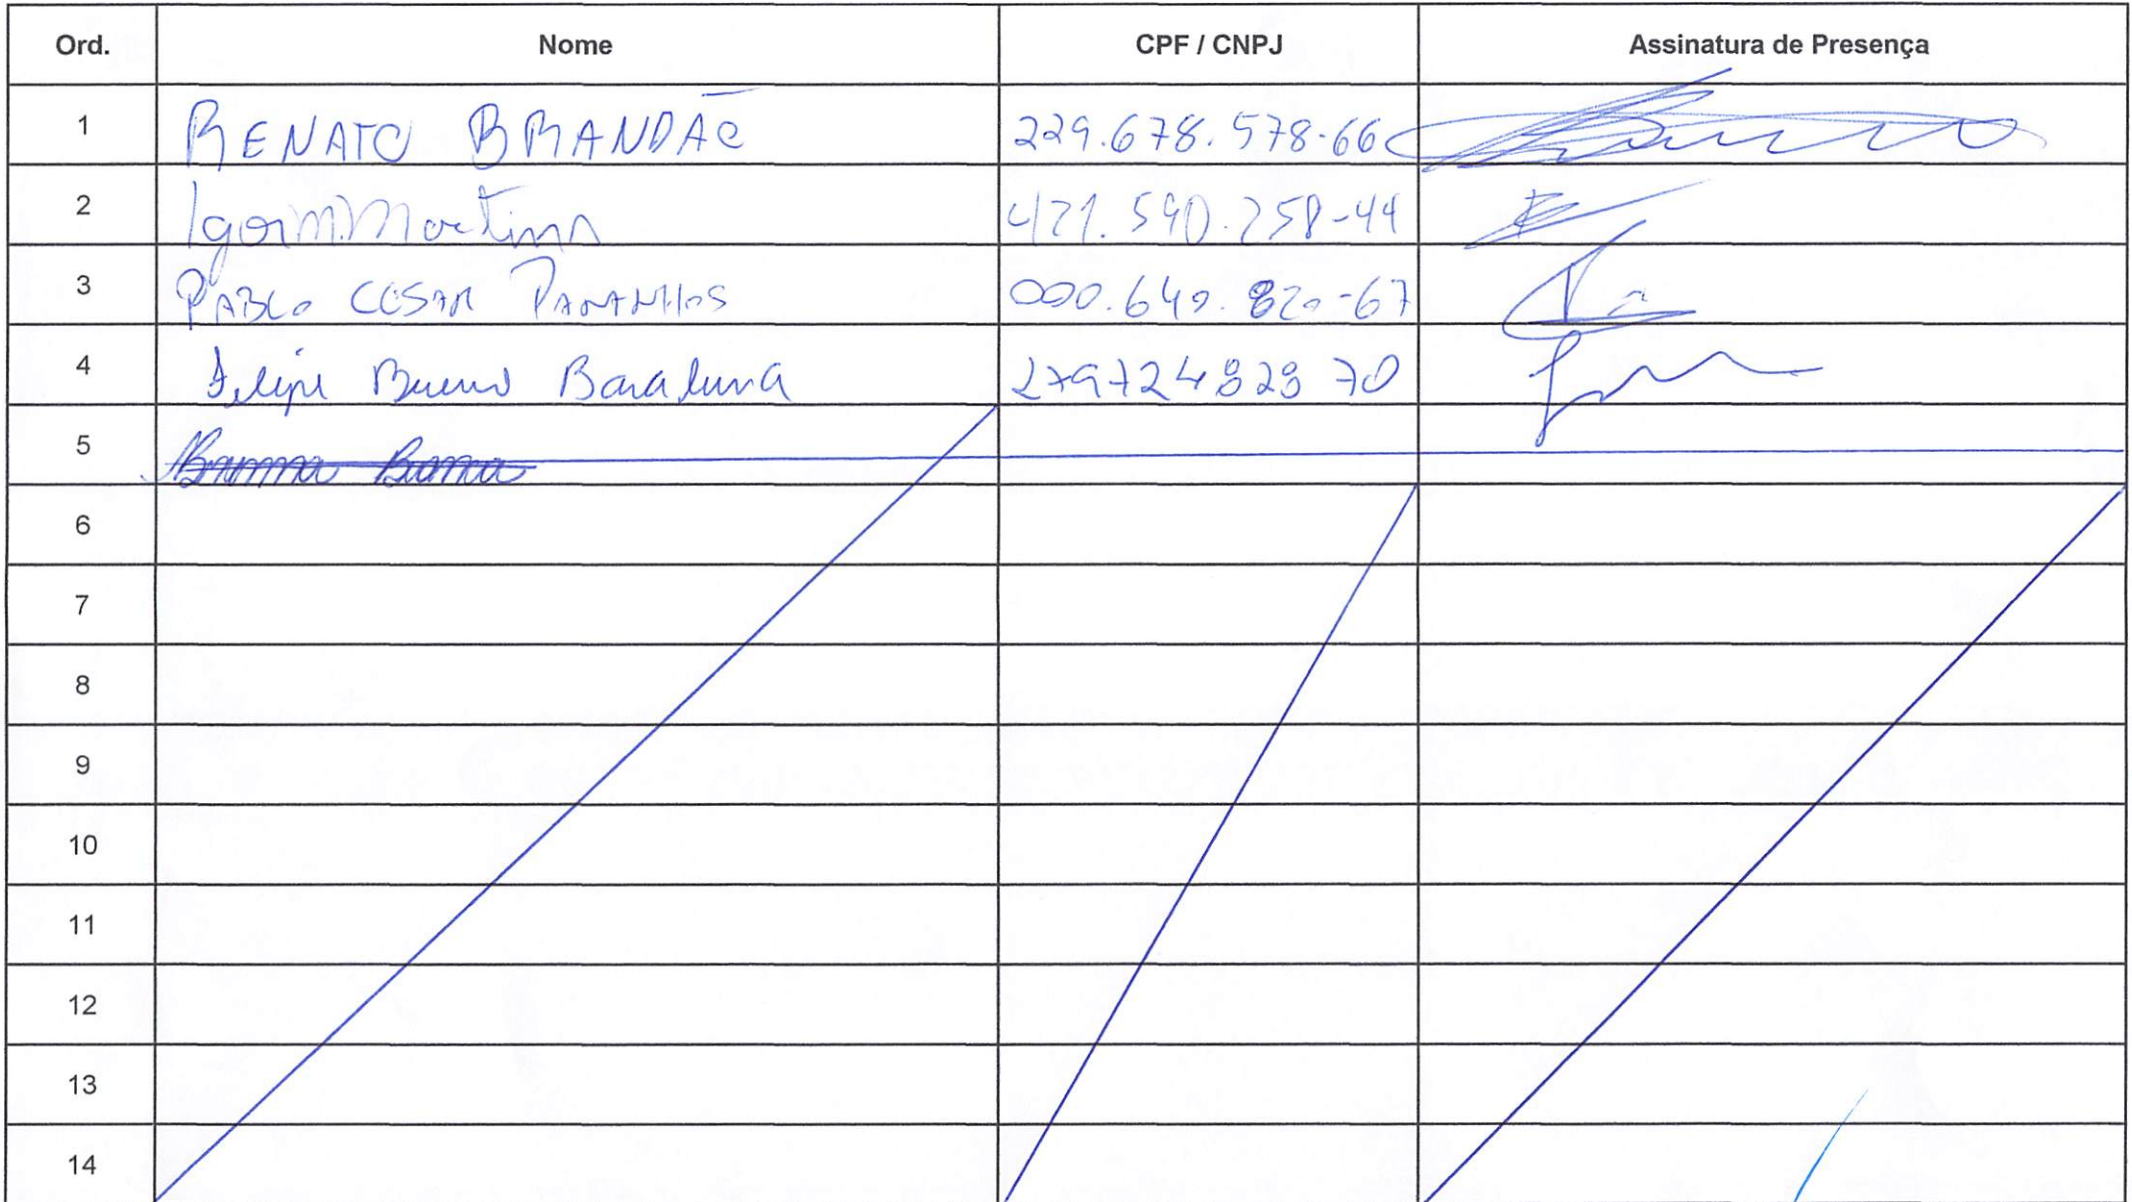 Ord. Nome CPF / CNPJ Assinatura de Presença
1 RENATO BRANDÃO 229.678.578-66
2 Igor M. Martins 421.590.258-44
3 PABLO CESAR PARANHOS 000.640.820-67
4 Felipe Bueno Baraluna 279724828 70
5
6
7
8
9
10
11
12
13
14